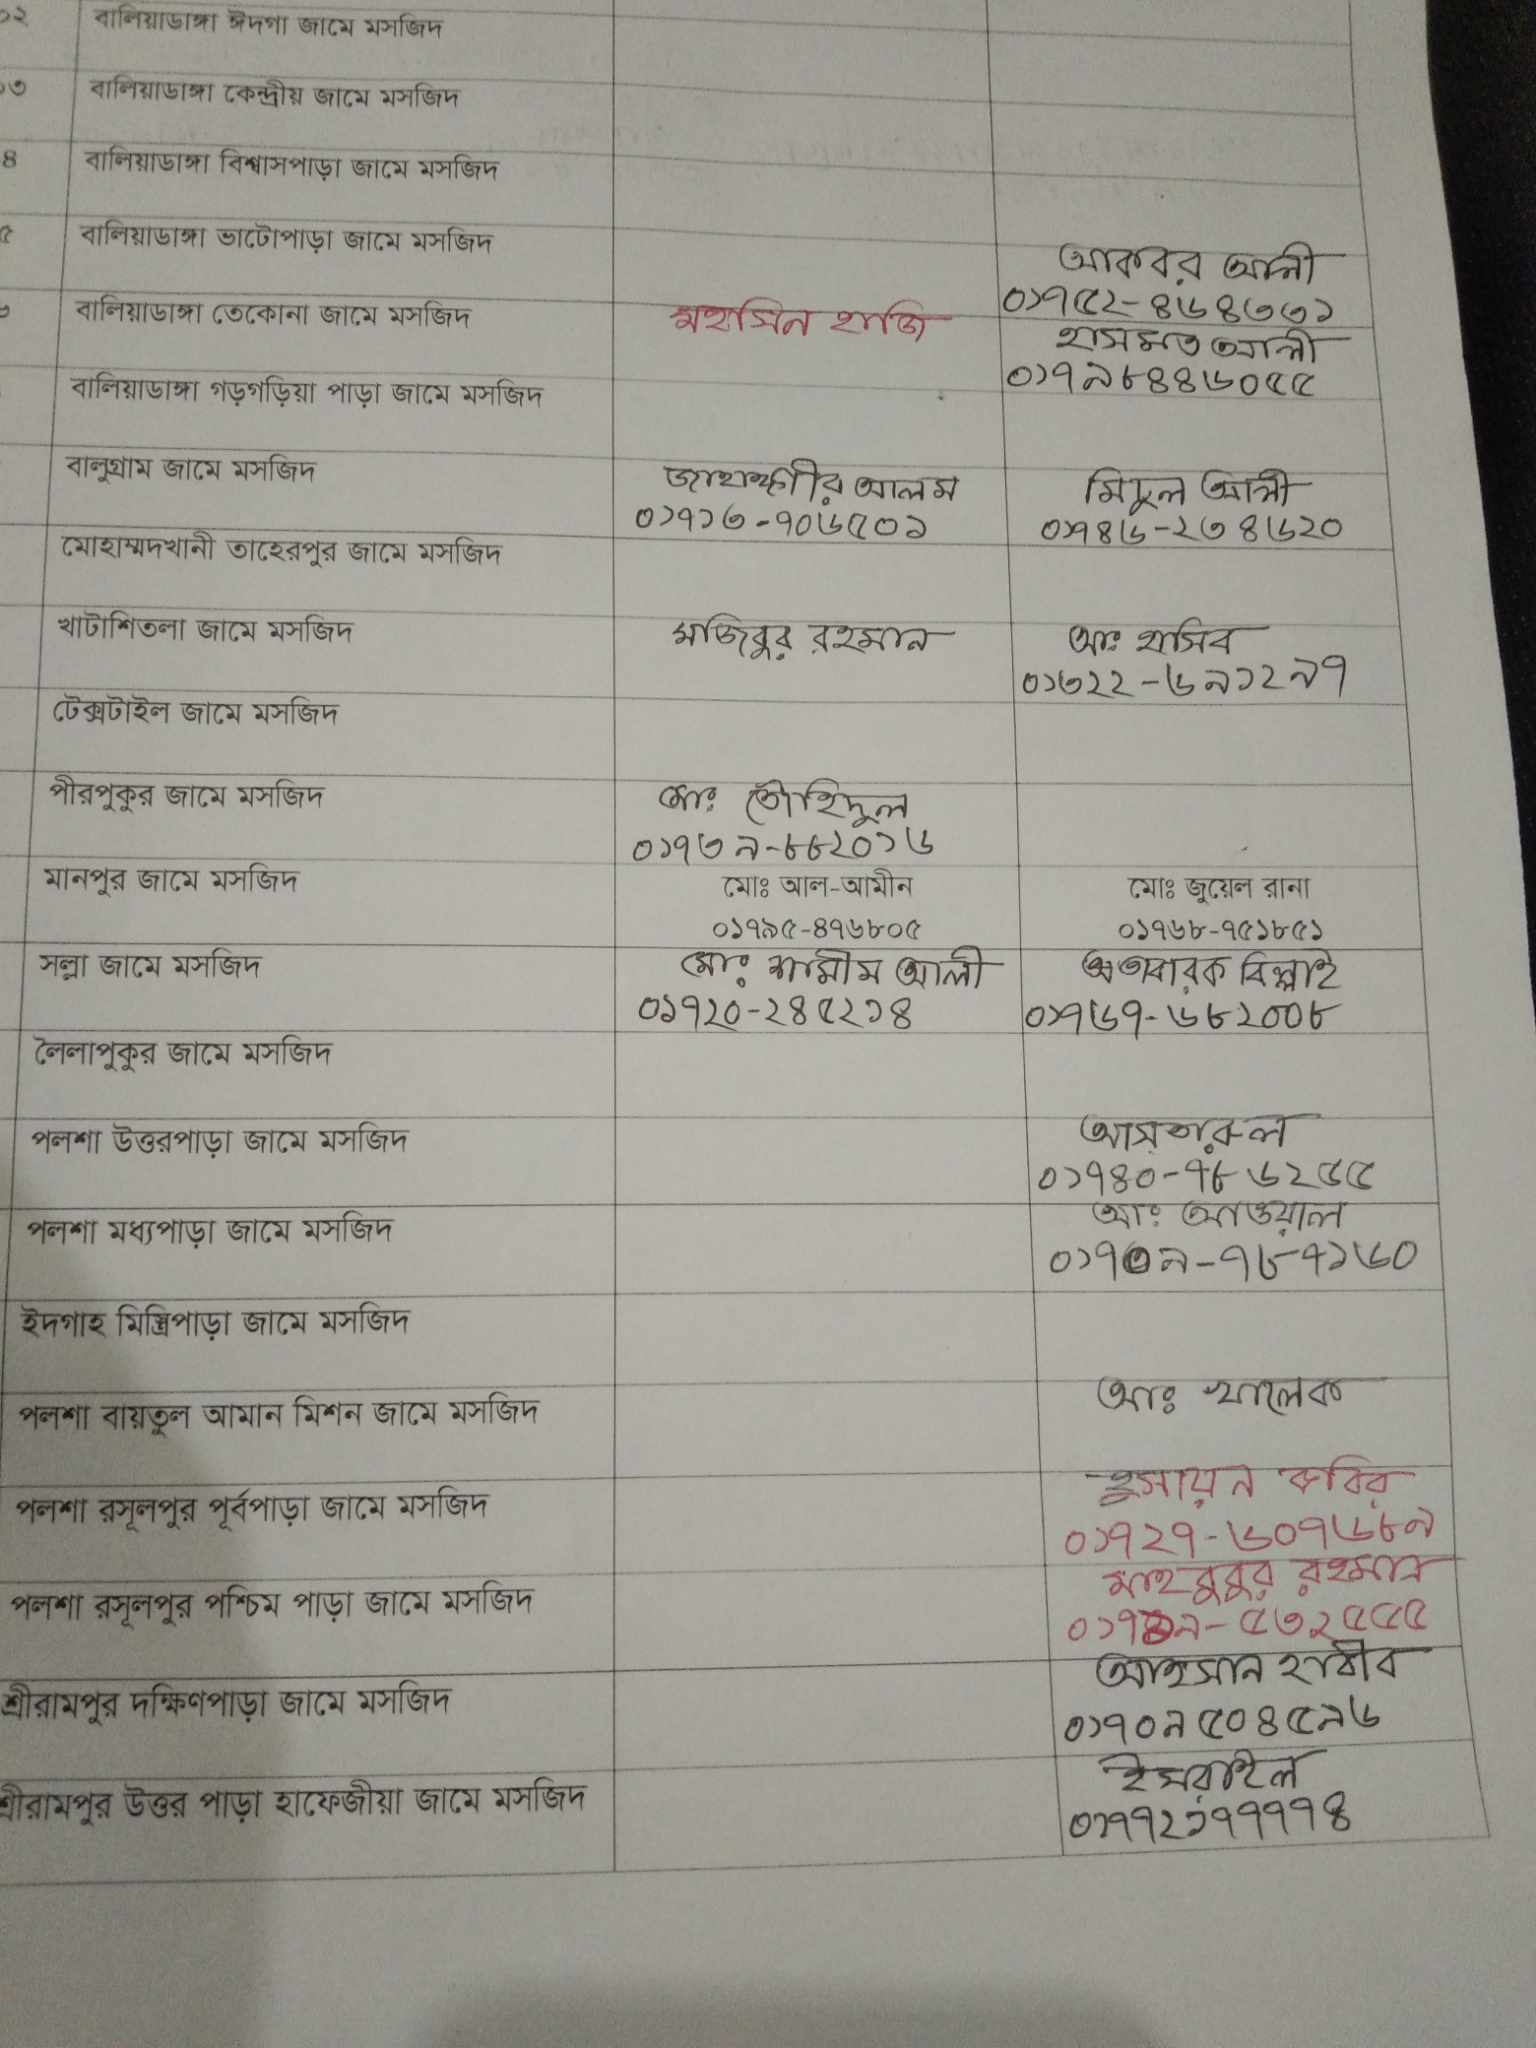 ০২ বালিয়াডাঙ্গা ঈদগা জামে মসজিদ
০৩ বালিয়াডাঙ্গা কেন্দ্রীয় জামে মসজিদ
৪ বালিয়াডাঙ্গা বিশ্বাসপাড়া জামে মসজিদ
৫ বালিয়াডাঙ্গা ভাটোপাড়া জামে মসজিদ
আকবর আলী
০১৭৫২-৪৬৪৩৩১
বালিয়াডাঙ্গা তেকোনা জামে মসজিদ
মহসিন হাজি
হাসমত আলী
০১৭৯৮৪৪৬০৫৫
বালিয়াডাঙ্গা গড়গড়িয়া পাড়া জামে মসজিদ
বালুগ্রাম জামে মসজিদ
জাহাঙ্গীর আলম
মিদুল আলী
০১৭১৩-৭০৬৫০১
০১৭৪৬-২৩৪৬২০
মোহাম্মদখানী তাহেরপুর জামে মসজিদ
খাটাশিতলা জামে মসজিদ
মজিবুর রহমান
আঃ হাসিব
০১৩২২-৬৯১২৯৭
টেক্সটাইল জামে মসজিদ
পীরপুকুর জামে মসজিদ
মোঃ তৌহিদুল
০১৭৩৯-৮৮২০১৬
মানপুর জামে মসজিদ
মোঃ আল-আমীন
মোঃ জুয়েল রানা
০১৭৯৫-৪৭৬৮০৫
০১৭৬৮-৭৫১৮৫১
সল্লা জামে মসজিদ
মোঃ শামীম আলী
বিল্লাহ
০১৭২০-২৪৫২১৪
০১৭৬৭-৬৮২০০৮
লৈলাপুকুর জামে মসজিদ
পলশা উত্তরপাড়া জামে মসজিদ
আসতারুল
০১৭৪০-৭৮৬২৫৫
পলশা মধ্যপাড়া জামে মসজিদ
আঃ আওয়াল
ইদগাহ মিস্ত্রিপাড়া জামে মসজিদ
পলশা বায়তুল আমান মিশন জামে মসজিদ
আঃ খালেক
পলশা রসূলপুর পূর্বপাড়া জামে মসজিদ
হুসায়ন কবির
০১৭২৭-৬০৭৬৮৯
পলশা রসূলপুর পশ্চিম পাড়া জামে মসজিদ
মাহবুবুর রহমান
শ্রীরামপুর দক্ষিণপাড়া জামে মসজিদ
আহসান হাবীব
০১৭০৯৫০৪৫৯৬
শ্রীরামপুর উত্তর পাড়া হাফেজীয়া জামে মসজিদ
ইসরাইল
০১৭৭২১৭৭৭৭৪